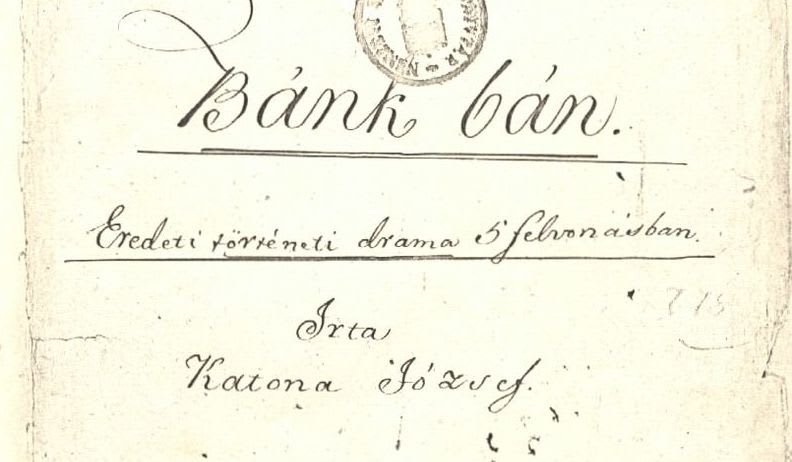 Bánk bán.
Eredeti történeti drama 5 felvonásban.
Irta
Katona József.